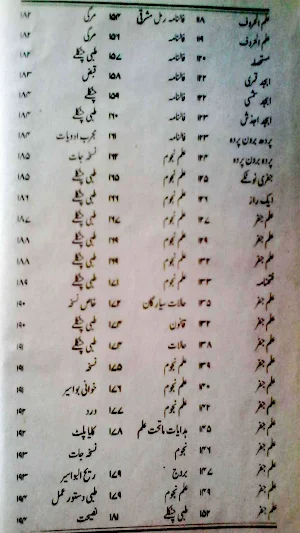 علم الحروف ۱۱۸ فالنامہ رمل مشرقی ۱۵۴ مرگی ۱۸۲
علم الحروف ۱۱۹ فالنامہ ۱۵۶ مرگی ۱۸۲
مستحصلہ ۱۲۰ فالنامہ ۱۵۷ طبی چٹکلے ۱۸۲
ابجد قمری ۱۲۲ فالنامہ ۱۵۸ قبض ۱۸۳
ابجد شمسی ۱۲۲ فالنامہ ۱۵۹ چٹکلے ۱۸۴
ابجد اجہذش ۱۲۳ فالنامہ ۱۶۰ طبی چٹکلے ۱۸۴
پردہ برون پردہ ۱۲۳ فالنامہ ۱۶۱ مجرب ادویات ۱۸۴
پردہ برون پردہ ۱۲۴ علم نجوم ۱۶۴ نسخہ جات ۱۸۵
جفری ٹوٹکے ۱۲۵ علم نجوم ۱۶۵ طبی چٹکلے ۱۸۵
ایک راز علم نجوم ۱۶۶ طبی چٹکلے ۱۸۶
علم جفر ۱۲۷ علم نجوم ۱۶۷ طبی چٹکلے ۱۸۷
علم جفر علم نجوم طبی چٹکلے ۱۸۸
علم جفر ۱۳۲ علم نجوم طبی چٹکلے ۱۸۸
علم نجوم ۱۷۱ طبی چٹکلے ۱۸۹
علم جفر ۱۳۵ حالات سیارگان ۱۷۲ خاص نسخہ ۱۹۰
علم جفر قانون ۱۷۳ طبی چٹکلے ۱۹۰
علم جفر ۱۳۸ حالات ۱۷۳ طبی چٹکلے ۱۹۱
علم جفر ۱۳۹ علم نجوم ۱۷۵ نسخہ ۱۹۱
علم جفر ۱۴۰ علم نجوم ۱۷۶ خونی بواسیر ۱۹۲
علم جفر ۱۴۲ علم نجوم ۱۷۷ درد
علم جفر ۱۴۵ ہدایات ماتحت علم ۱۷۸ کایا پلٹ ۱۹۲
علم جفر ۱۴۶ نجوم نسخہ جات ۱۹۳
علم جفر ۱۴۷ بروج ۱۷۹ ریح البواسیر ۱۹۳
علم جفر ۱۴۹ علم نجوم ۱۷۹ طبی دستور عمل
علم جفر ۱۵۲ طبی چٹکلے ۱۸۱ نصیحت